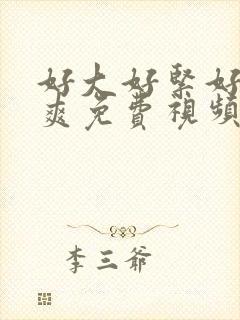 好大好緊好
爽免費視頻
李三爺